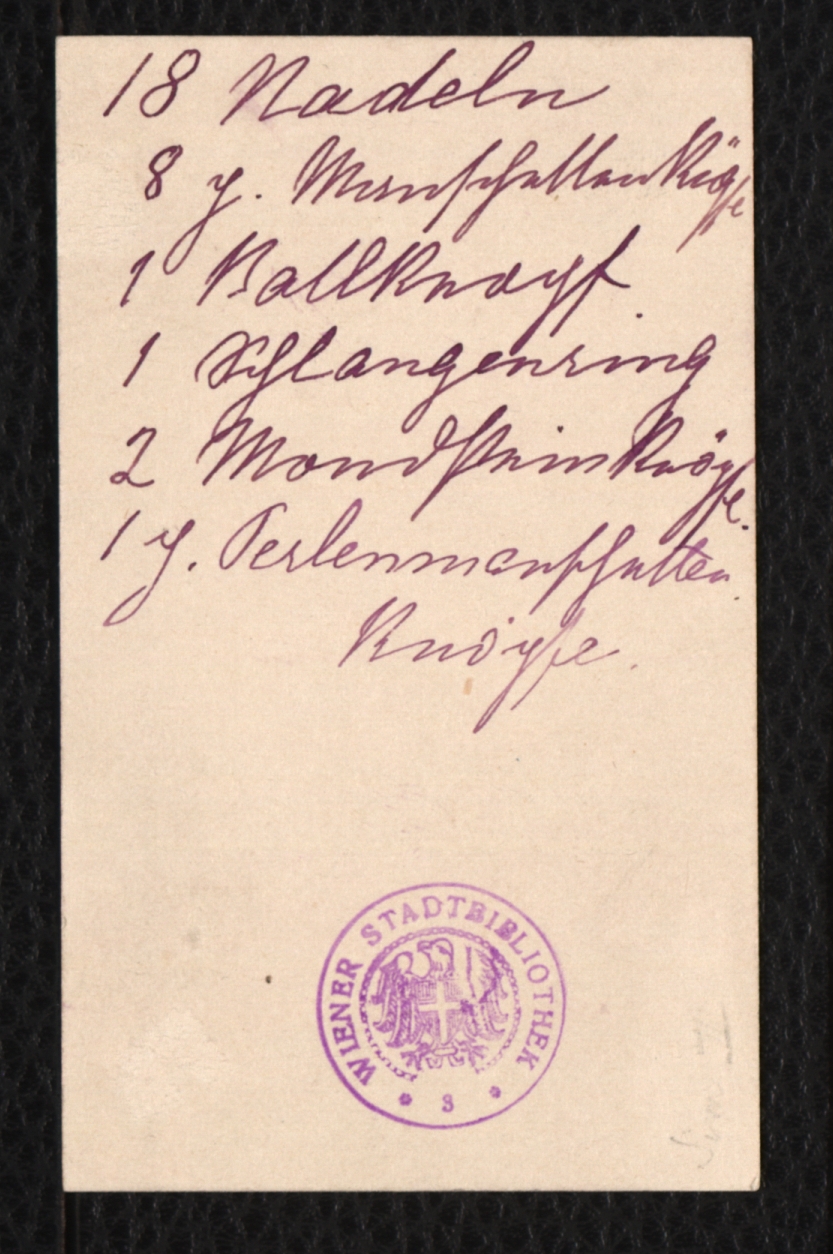 18 Nadeln
8 p. Manschettenknöpfe
1 Ballknopf
1 Schlangenring
2 Mondsteinknöpfe.
1 p. Perlenmanschetten
Knöpfe.
WIENER STADTBIBLIOTHEK
* 3 *